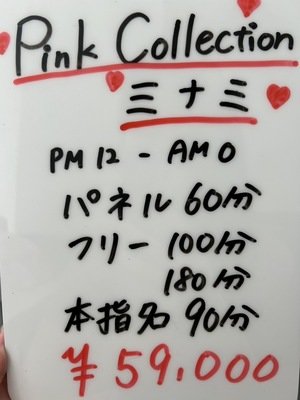 Pink Collection
三ナ三
PM12-AM0
パネル 60分
フリー 100分
180分
本指名 90分
¥59,000